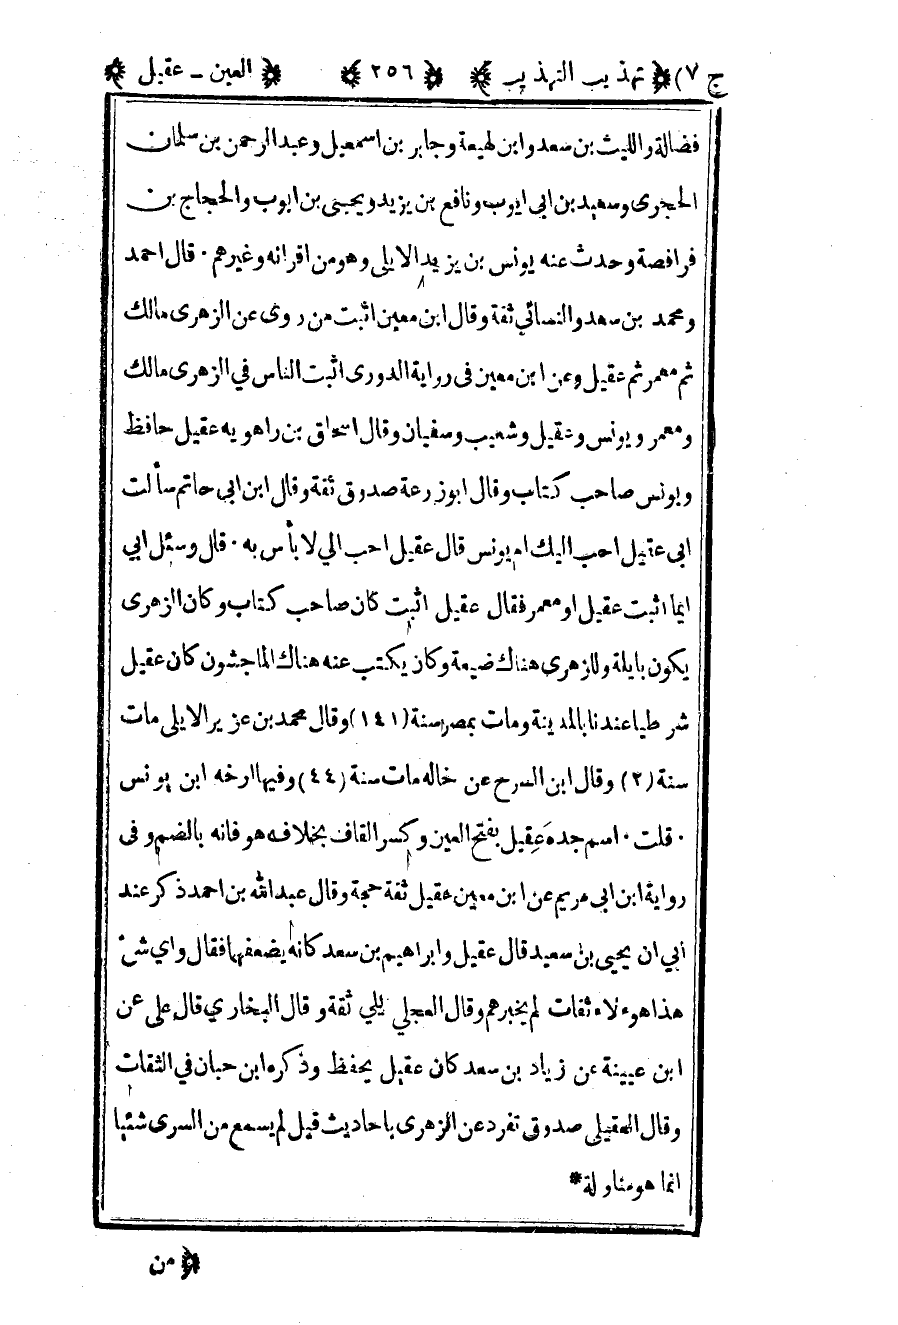 ج ٧) تهذيب التهذيب ٢٥٦ العين - عقيل
فضالة والليث بن سعد وابن لهيعة وجابر بن اسمعيل وعبدالرحمن بن سلمان
الحجرى وسعيد بن ابى ايوب ونافع بن يزيد ويحيى بن ايوب والحجاج بن
فرافصة وحدث عنه يونس بن يزيد الايلى وهو من اقرانه وغيرهم · قال احمد
ومحمد بن سعد والنسائي ثقة وقال ابن معين اثبت من روى عن الزهرى مالك
ثم معمر ثم عقيل وعن ابن معين فى رواية الدورى اثبت الناس في الزهرى مالك
ومعمر ويونس وعقيل وشعيب وسفيان وقال اسحاق بن راهويه عقيل حافظ
ويونس صاحب كتاب وقال ابوزرعة صدوق ثقة وقال ابن ابي حاتم سألت
ابى عقيل احب اليك ام يونس قال عقيل احب الي لا بأس به · قال وسئل ابي
ايما اثبت عقيل او معمر فقال عقيل اثبت كان صاحب كتاب وكان الزهرى
يكون بايلة وللزهرى هناك ضيعة وكان يكتب عنه هناك الماجشون كان عقيل
شرطيا عندنا بالمدينة ومات بمصر سنة (١٤١) وقال محمد بن عزير الايلى مات
سنة (٢) وقال ابن السرح عن خاله مات سنة (٤٤) وفيها ارخه ابن يونس
· قلت · اسم جده عَقِيل بفتح العين وكسر القاف بخلافه هو فانه بالضم وفى
رواية ابن ابى مريم عن ابن معين عقيل ثقة حجة وقال عبدالله بن احمد ذكر عند
ابي ان يحيى بن سعيد قال عقيل وابراهيم بن سعد كانه يضعفهما فقال واي شئ
هذا هوءلاء ثقات لم يخبرهم وقال العجلي ايلي ثقة وقال البخاري قال على عن
ابن عيينة عن زياد بن سعد كان عقيل يحفظ وذكره ابن حبان في الثقات
وقال العقيلى صدوق تفرد عن الزهرى باحاديث قيل لم يسمع من السرى شيئا
انما هو مناولة *
من